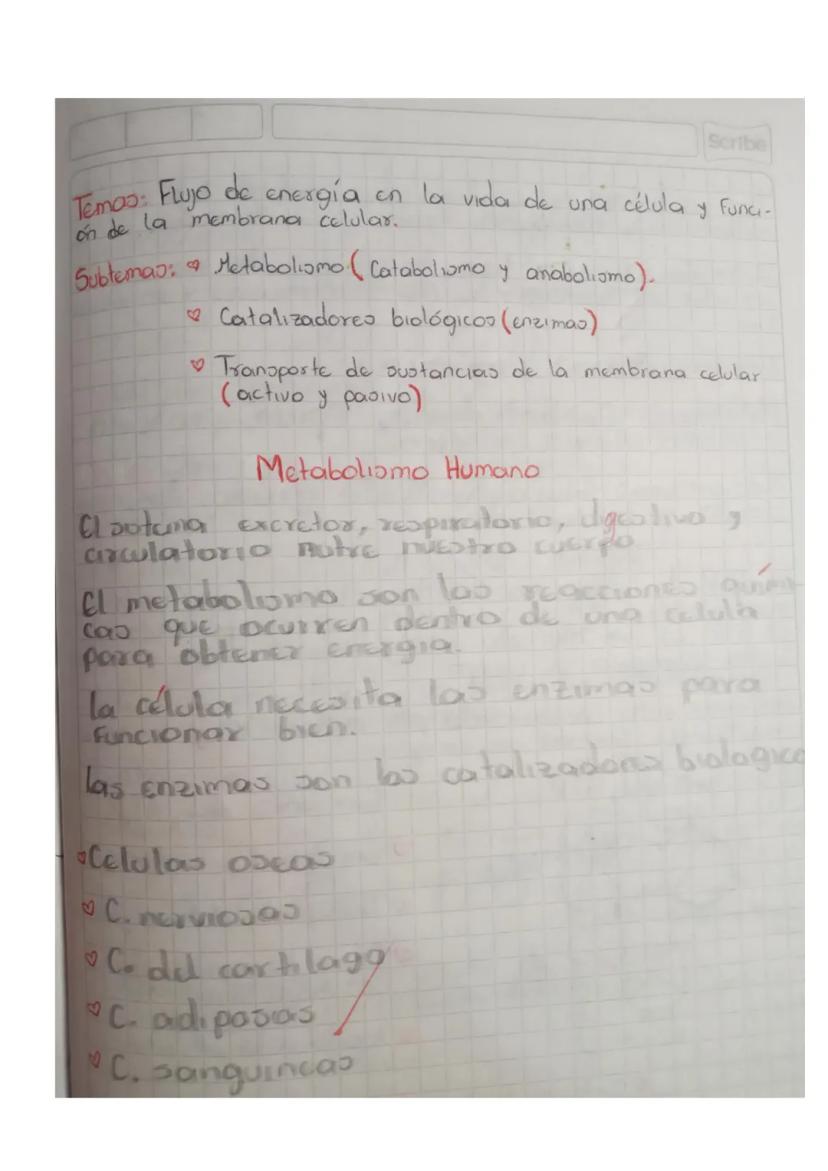 Scribe
Temas: Flujo de energía en la vida de una célula y Funci-
ón de la membrana celular.
Subtemas: Metabolismo (Catabolismo y anabolismo).
Catalizadores biológicos (enzimas)
Transporte de sustancias de la membrana celular
(activo y pasivo)
Metabolismo Humano
El sistema excretor, respiratorio, digestivo y
circulatorio nutre nuestro cuerpo
El metabolismo son las reacciones quími
cas que ocurren dentro de una celula
para obtener energia.
la célula necesita las enzimas para
funcionar bien.
las enzimas son los catalizadores biologico
Celulas oseas
C. nerviosas
C. del cartilago
C. adiposas
C. sanguineas